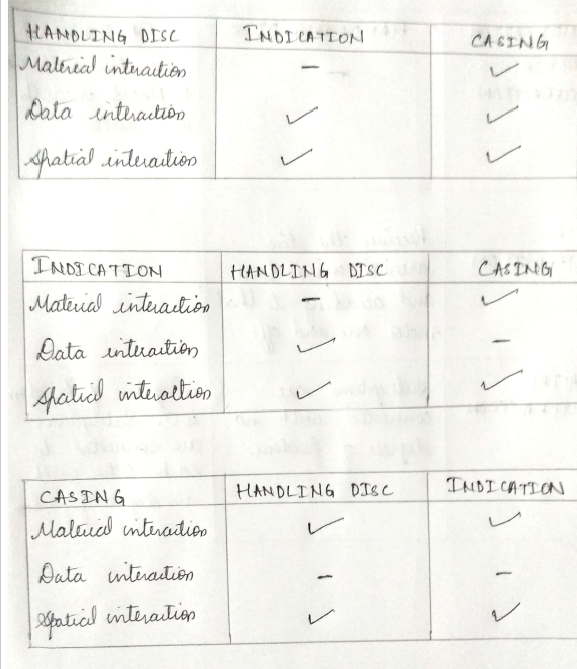 HANDLING DISC INDICATION CASING
Material interaction – ✓
Data interaction ✓ ✓
Spatial interaction ✓ ✓
INDICATION HANDLING DISC CASING
Material interaction – ✓
Data interaction ✓ –
Spatial interaction ✓ ✓
CASING HANDLING DISC INDICATION
Material interaction ✓ ✓
Data interaction – –
Spatial interaction ✓ ✓